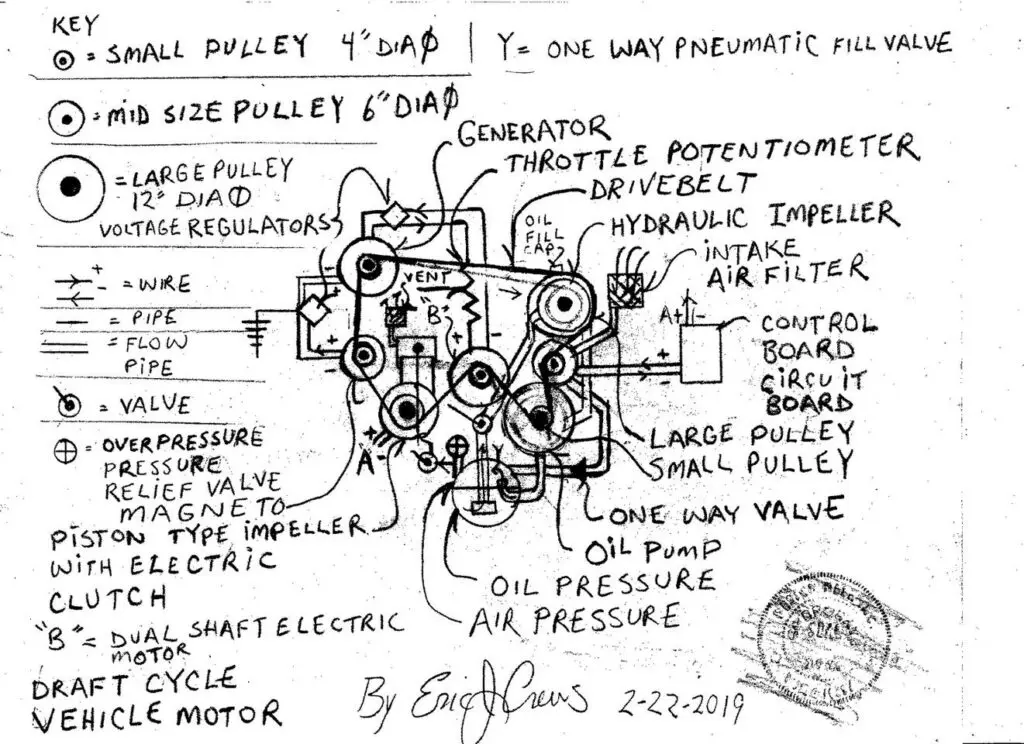 KEY
= SMALL PULLEY 4" DIAØ
Y = ONE WAY PNEUMATIC FILL VALVE
= MID SIZE PULLEY 6" DIAØ
= LARGE PULLEY
12" DIAØ
VOLTAGE REGULATORS
GENERATOR
THROTTLE POTENTIOMETER
DRIVEBELT
OIL
FILL
CAP
HYDRAULIC IMPELLER
INTAKE
AIR FILTER
+
- = WIRE
= PIPE
= FLOW
PIPE
= VALVE
VENT
"B"
A+ -
CONTROL
BOARD
CIRCUIT
BOARD
= OVERPRESSURE
PRESSURE
RELIEF VALVE
MAGNETO
A-
Y
LARGE PULLEY
SMALL PULLEY
PISTON TYPE IMPELLER
WITH ELECTRIC
CLUTCH
ONE WAY VALVE
OIL PUMP
OIL PRESSURE
AIR PRESSURE
"B" = DUAL SHAFT ELECTRIC
MOTOR
DRAFT CYCLE
VEHICLE MOTOR
By Eric J Crews
2-22-2019